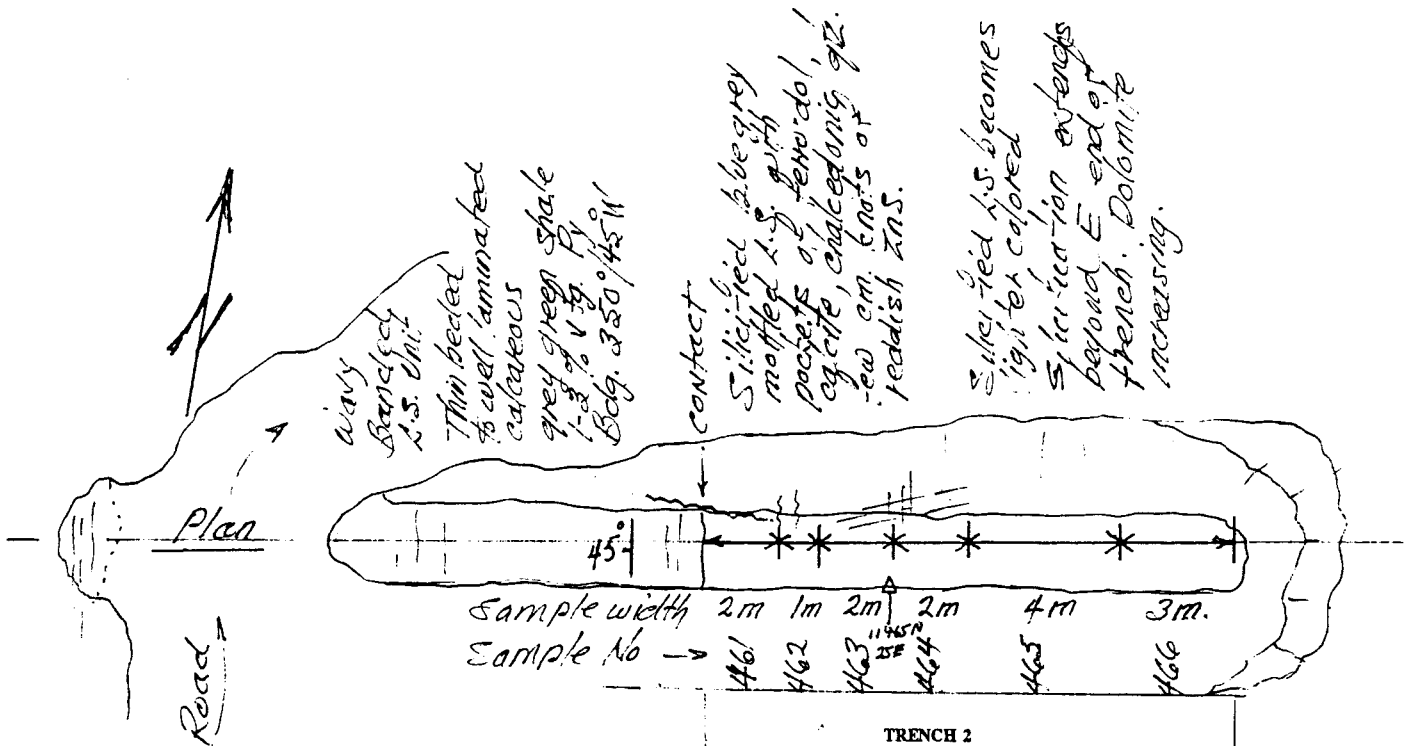 Wavy
Banded
L.S. Unit
Thin bedded
to well laminated
calcateous
grey green shale
1-3% v.fg. Py
Bdg. 350°/45°W
contact
Silicified blue grey
mottled L.S. with
pockets of ferro-dol,
calcite, chalcedonic qz.
few cm. knots of
reddish ZnS.
Silicified L.S. becomes
lighter colored
Silicification extends
beyond E end of
trench. Dolomite
increasing.
N
Plan
45°
Road
Sample width 2m 1m 2m 2m 4m 3m.
Sample No → 461 462 463 464 465 466
11465N
25E
TRENCH 2